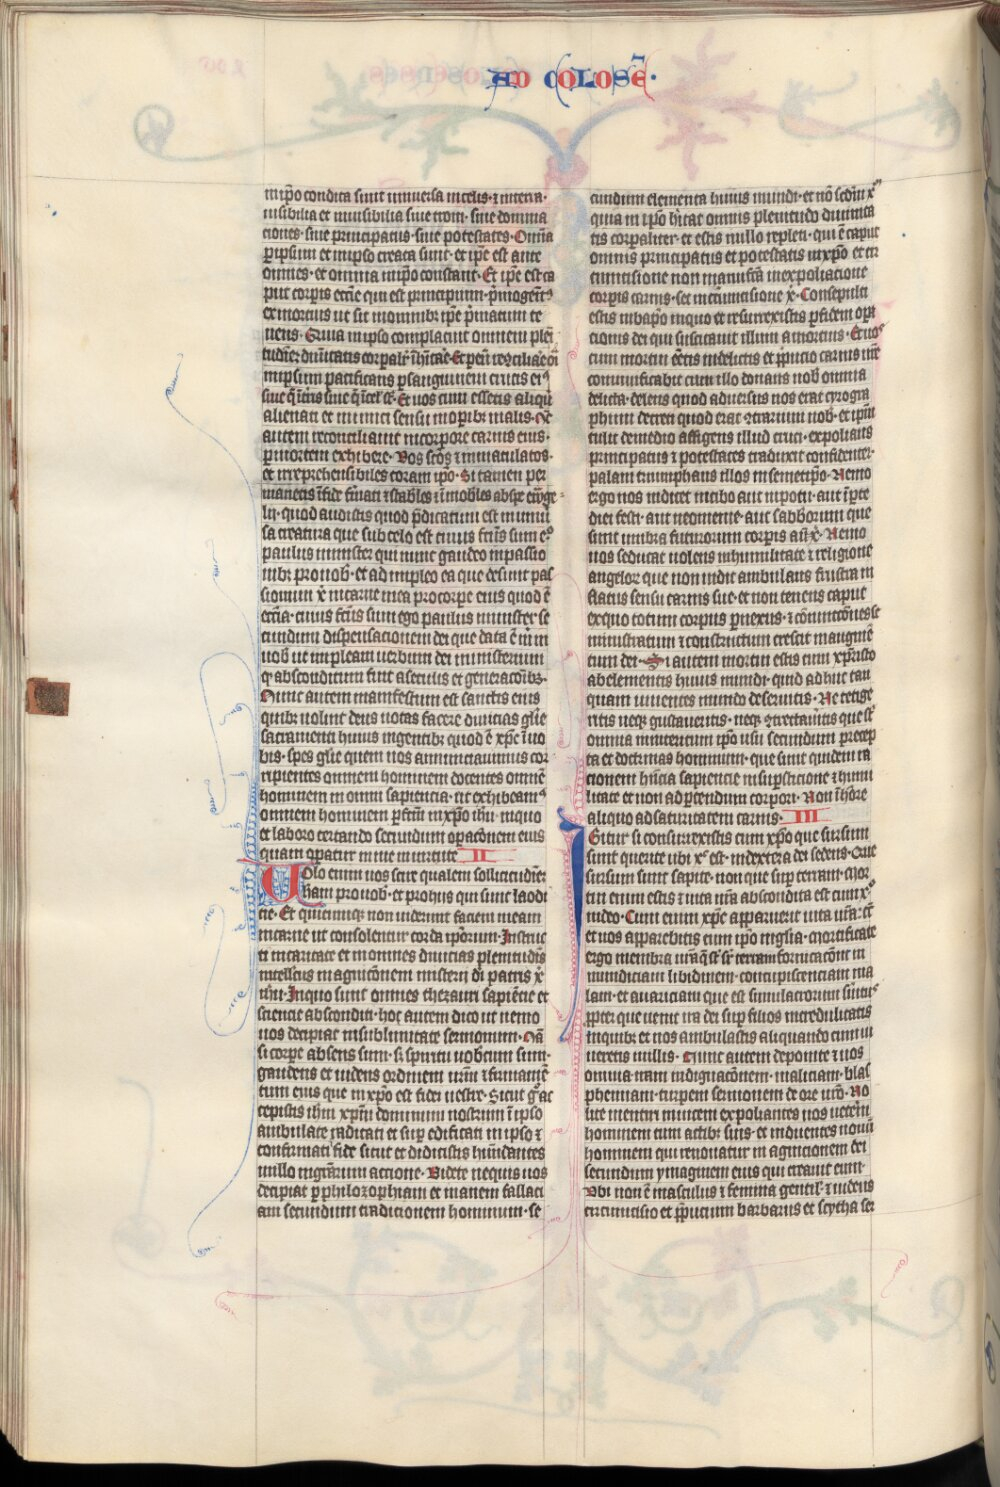 AD COLOSEñ.
in ip̄o condita sunt universa in celis· ⁊ in terra·
visibilia et invisibilia sive troni· sive domina
ciones· sive principatus· sive potestates· Om̄ia
p ipsum et in ipso creata sunt· et ip̄e est ante
omnes· et omnia in ip̄o constant· Et ip̄e est ca
put corpis eccīe qui est principium· p̄mogenit9
ex mortuis ut sit in omnibz ip̄e p̄matum te
nens· Quia in ipso complacuit omnem plen
tudiēz divinitatis corpalit̄ īhitāe· Et p eū recōciliacōi
in ipsum pacificans p sanguinem crucis ei9
sive q̄ in t̄ris sive q̄ in cel̄ st̄· Et vos cum essetis aliqn̄
alienati et inimici sensu in opibz malis· Nc̄
autem reconciliavit in corpore carnis eius·
p mortem exhibere· Vos sc̄os ⁊ immaculatos·
et irreprehensibiles coram ip̄o· Si tamen per
manetis ī fide fūdati ⁊ stabiles ⁊ īmobiles ab spe ewāge
lii· quod audistis quod p̄dicatum est in univ̄
sa creatura que sub celo est cuius fc̄us sum e9
paulus minister qui nunc gaudeo in passio
nibz pro vob̄· et adimpleo ea que desunt pas
sionum x̄ in carne mea pro corpe eius quod ē
ecc̄ia· cuius fc̄us sum ego paulus minister se
cundum dispensacionem dei que data ē m̄ in
vob̄ ut impleam verbum dei ministerium
q absconditum fuit a seculis et generacōibz·
Nunc autem manifestum est sanctis eius
quibz voluit deus notas facere divicias gl̄ie
sacramenti huius in gentibz quod ē xp̄c ī vo
bis· spes gl̄ie quem nos annunciavimus cor
ripientes omnem hominem docentes omnē
hominem in omni sapiencia· ut exhibeam9
omnem hominem p̄fc̄m in xp̄o ihū· in quo
et laboro certando secundum op̄acōnem eius
quam op̄atur in me in virtute II
Volo enim vos scire qualem sollicitudiēz
h̄am pro vob̄· et pro hiis qui sunt laodi
cie· Et quicumqz non viderunt faciem meam
in carne ut consolentur corda ip̄orum· Instruc
ti in caritate et in omnes divicias plenitudīs
intellcūs in agnicōnem misterii di patris x̄
ihū· In quo sunt omnes thezauri sapiēcie et
sciencie absconditi· hoc autem dico ut nemo
vos decipiat in sublimitate sermonum· Nā
si corpe absens sum· sz spiritu vobcum sum·
gaudens et videns ordinem vr̄m ⁊ firmamē
tum eius que in xp̄o est fidei vestre· Sicut g̊ ac
cepistis ihm xp̄m dominum nostrum ī ipso
ambulate radicati et sup̄ edificati in ipso ⁊
confirmati fide sicut et didicistis hūdantes
in illo in gr̄arum accione· Videte ne quis vos
decipiat p philozophiam et inanem fallaci
am secundum tradicionem hominum· se
cundum elementa huius mundi· et nō sedm̄ x̄
quia in ip̄o h̄itat omnis plenitudo divinita
tis corpaliter· et estis in illo repleti· qui ē caput
omnis principatus et potestatis in xp̄o et cir
cumcisione non manufc̄a in expoliacione
corpis carnis· set in cūmcisione x̄· Consepulti
estis in bap̄o in quo et resurrexistis p fidem opa
cionis dei qui suscitavit illum a mortuis· Et vos
cum mortui eētis in delictis et ppucio carnis vr̄e
convivificavit cum illo donans nob̄ omnia
delicta· delens quod adversus nos erat cyrogra
phum decreti quod erat 9trarium nob̄· et ip̄m
tulit de medio affigens illud cruci· expolians
principatus ⁊ potestates traduxit confidenter·
palam triumphans illos in semetip̄o· Nemo
ergo vos iudicet in cibo aut in potu· aut ī pte
diei festi· aut neomenie· aut sabborum que
sunt umbra futurorum corpus aūt x̄· Nemo
vos seducat volens in humilitate ⁊ religione
angelor̄ que non vidit ambulans frustra in
flatus sensu carnis sue· et non tenens caput
ex quo totum corpus p nexus· ⁊ cōiunctōnes se
ministratum ⁊ constructum crescit in augmē
tum dei· Si autem mortui estis cum xp̄risto
ab elementis huius mundi· quid adhuc tan
quam viventes mundo deservitis· Ne tetige
ritis neqz gustaveritis· neqz 9trectavitis que st̄
omnia in interitum ip̄o usu secundum precep
ta et doctrinas hominum· que sunt quidem ra
cionem hn̄cia sapiencie in supsticione ⁊ humi
litate et non ad pcendum corpori· Non ī hōre
aliquo ad saturitatem carnis· III
Igitur si consurrexistis cum xp̄o que sursum
sunt querite ubi x̄ est· in dextera dei sedens· Que
sursum sunt sapite· non que sup̄ terram· Mor
tui enim estis ⁊ vita vr̄a abscondita est cum x̄
in deo· Cum enim xp̄c apparuerit vita vr̄a· tc̄
et vos apparebitis cum ip̄o in glia· Mortificate
ergo membra vr̄a q̄ st̄ sr̄ terram fornicacōnem in
mundiciam libidinem· concupiscenciam ma
lam· et avariciam que est simulacrorum s̄vitus
ppter que venit ira dei sup̄ filios incredulitatis
in quibz et vos ambulastis aliquando cum vi
veretis in illis· Nunc autem deponite ⁊ vos
omnia· iram indignacōnem· maliciam· blas
phemiam· turpem sermonem de ore vr̄o· No
lite mentiri invicem expoliantes vos veterem
hominem cum actibz suis· et induentes novū
hominem qui renovatur in agnicionem dei
secundum ymaginem eius qui creavit eum·
Ubi non ē masculus ⁊ femina gentil̄· ⁊ iudeus
circumcisio et ppucium barbarus et scytha ser